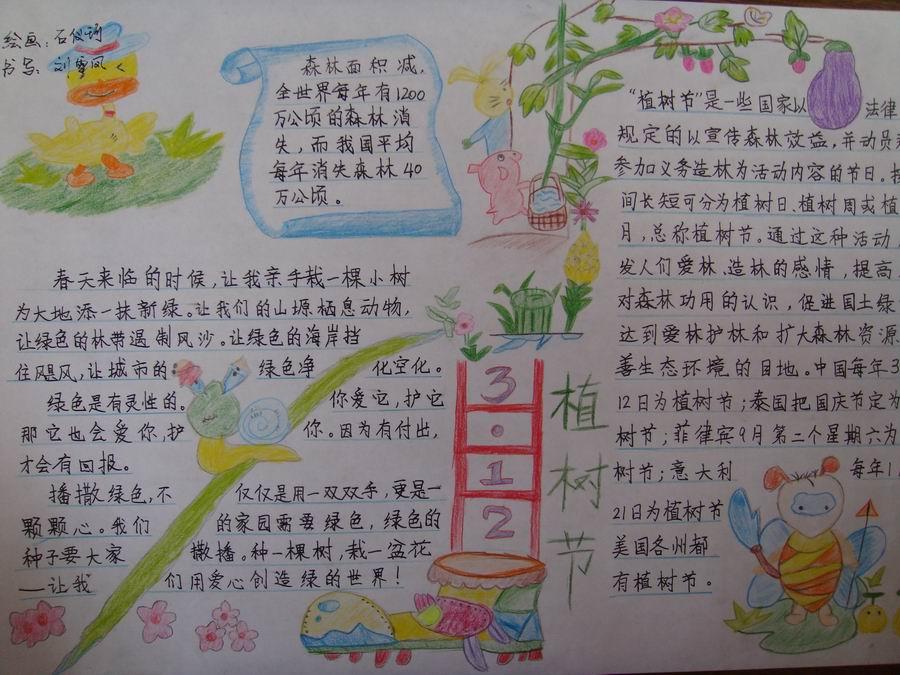 绘画：石仪诗
书写：刘雪凤
森林面积减，
全世界每年有1200
万公顷的森林消
失，而我国平均
每年消失森林40
万公顷。
春天来临的时候，让我亲手栽一棵小树
为大地添一抹新绿。让我们的山塬栖息动物，
让绿色的林带遏制风沙。让绿色的海岸挡
住飓风，让城市的绿色净化空化。
绿色是有灵性的。你爱它，护它
那它也会爱你，护你。因为有付出，
才会有回报。
播撒绿色，不仅仅是用一双双手，更是一
颗颗心。我们的家园需要绿色，绿色的
种子要大家撒播。种一棵树，栽一盆花
—让我们用爱心创造绿的世界！
3·12
植树节
“植树节”是一些国家以法律
规定的以宣传森林效益，并动员
参加义务造林为活动内容的节日。按
间长短可分为植树日、植树周或植
月，总称植树节。通过这种活动，
发人们爱林、造林的感情，提高
对森林功用的认识，促进国土绿
达到爱林护林和扩大森林资源
善生态环境的目地。中国每年3
12日为植树节；泰国把国庆节定为
树节；菲律宾9月第二个星期六为
树节；意大利每年1
21日为植树节
美国各州都
有植树节。